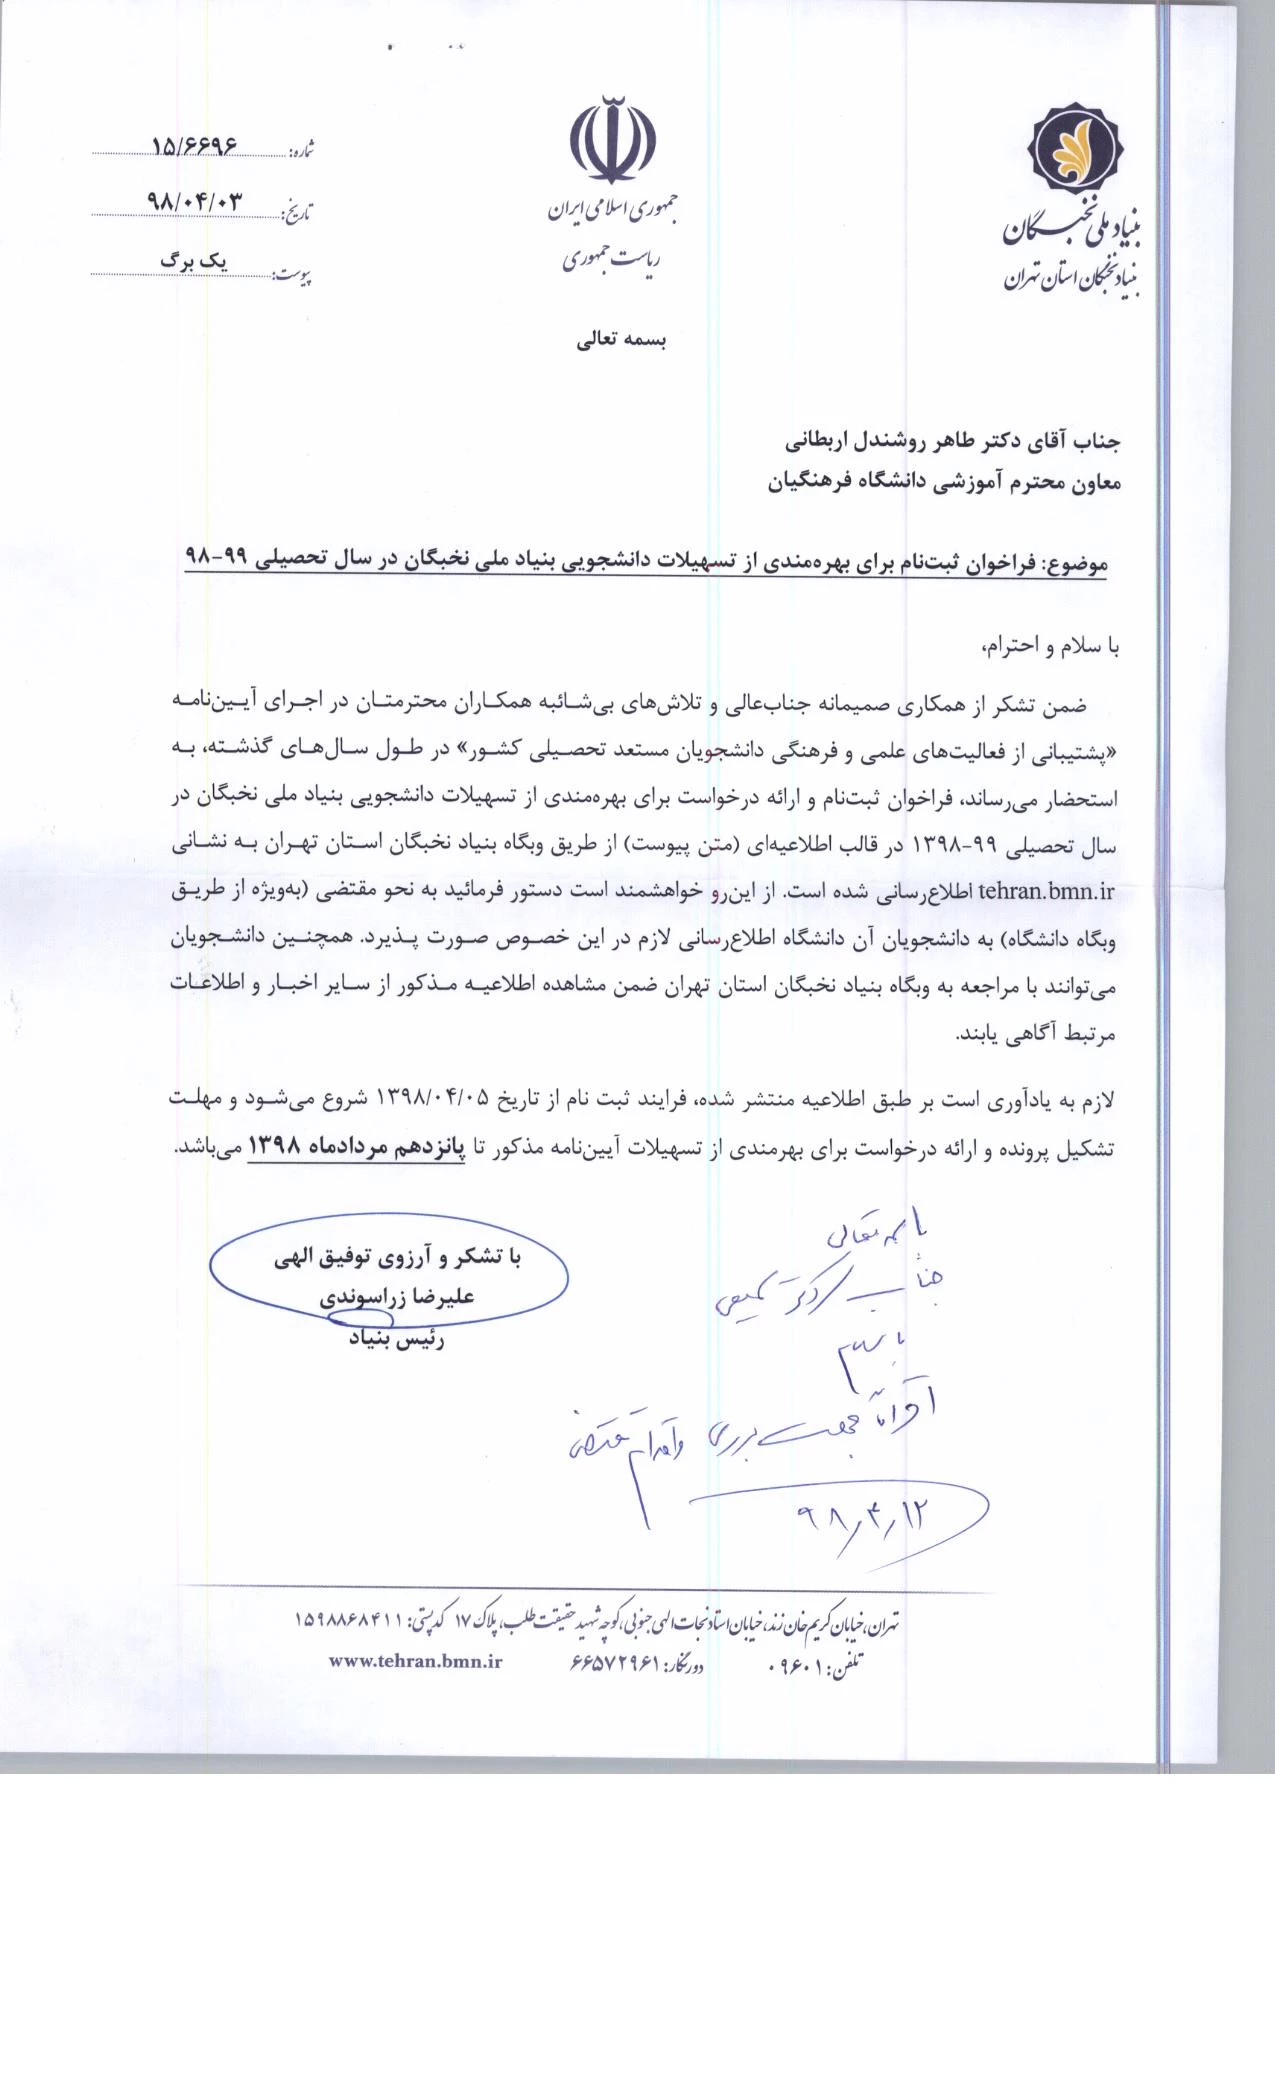 بنیاد ملی نخبگان
بنیاد نخبگان استان تهران
جمهوری اسلامی ایران
ریاست جمهوری
شماره: ۱۵/۶۶۹۶
تاریخ: ۹۸/۰۴/۰۳
پیوست: یک برگ
بسمه تعالی
جناب آقای دکتر طاهر روشندل اربطانی
معاون محترم آموزشی دانشگاه فرهنگیان
موضوع: فراخوان ثبت‌نام برای بهره‌مندی از تسهیلات دانشجویی بنیاد ملی نخبگان در سال تحصیلی ۹۹-۹۸
با سلام و احترام،
ضمن تشکر از همکاری صمیمانه جناب‌عالی و تلاش‌های بی‌شائبه همکاران محترمتان در اجرای آیین‌نامه
«پشتیبانی از فعالیت‌های علمی و فرهنگی دانشجویان مستعد تحصیلی کشور» در طول سال‌های گذشته، به
استحضار می‌رساند، فراخوان ثبت‌نام و ارائه درخواست برای بهره‌مندی از تسهیلات دانشجویی بنیاد ملی نخبگان در
سال تحصیلی ۹۹-۱۳۹۸ در قالب اطلاعیه‌ای (متن پیوست) از طریق وبگاه بنیاد نخبگان استان تهران به نشانی
tehran.bmn.ir اطلاع‌رسانی شده است. از این‌رو خواهشمند است دستور فرمائید به نحو مقتضی (به‌ویژه از طریق
وبگاه دانشگاه) به دانشجویان آن دانشگاه اطلاع‌رسانی لازم در این خصوص صورت پذیرد. همچنین دانشجویان
می‌توانند با مراجعه به وبگاه بنیاد نخبگان استان تهران ضمن مشاهده اطلاعیه مذکور از سایر اخبار و اطلاعات
مرتبط آگاهی یابند.
لازم به یادآوری است بر طبق اطلاعیه منتشر شده، فرایند ثبت نام از تاریخ ۱۳۹۸/۰۴/۰۵ شروع می‌شود و مهلت
تشکیل پرونده و ارائه درخواست برای بهرمندی از تسهیلات آیین‌نامه مذکور تا پانزدهم مردادماه ۱۳۹۸ می‌باشد.
با تشکر و آرزوی توفیق الهی
علیرضا زراسوندی
رئیس بنیاد
باسمه تعالی
جناب دکتر
با سلام
جهت بررسی و اقدام مقتضی
۹۸/۴/۱۲
تهران، خیابان کریم‌خان زند، خیابان استاد نجات الهی جنوبی، کوچه شهید حقیقت طلب، پلاک ۱۷ کدپستی: ۱۵۹۸۸۶۸۴۱۱
تلفن: ۰۹۶۰۱ دورنگار: ۶۶۵۷۲۹۶۱ www.tehran.bmn.ir